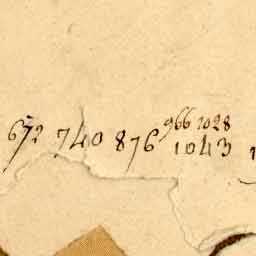 966 1028
672 740 876 1043